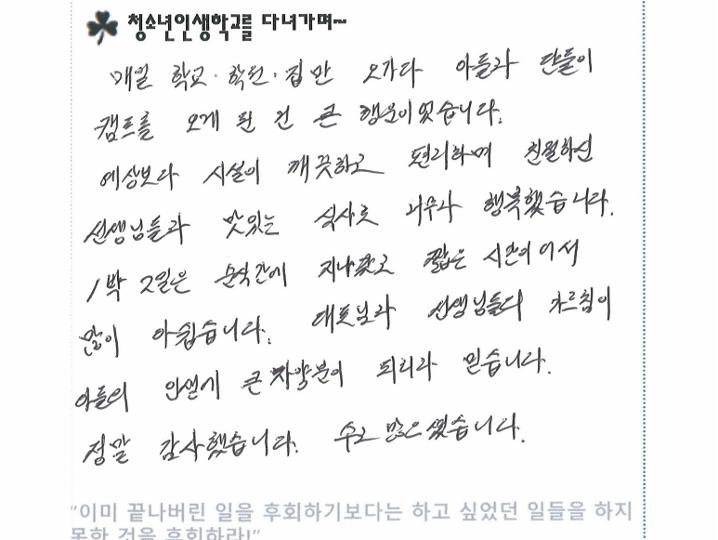 청소년인생학교를 다녀가며~
매일 학교·학원·집만 오가다 아들과 단둘이
캠프를 오게 된 건 큰 행운이었습니다.
예상보다 시설이 깨끗하고 편리하며 친절하신
선생님들과 맛있는 식사로 너무나 행복했습니다.
1박 2일은 순식간에 지나갔고 짧은 시간이어서
많이 아쉽습니다. 대표님과 선생님들의 가르침이
아들의 인생에 큰 자양분이 되리라 믿습니다.
정말 감사했습니다. 수고 많으셨습니다.
"이미 끝나버린 일을 후회하기보다는 하고 싶었던 일들을 하지
못한 것을 후회하라!"